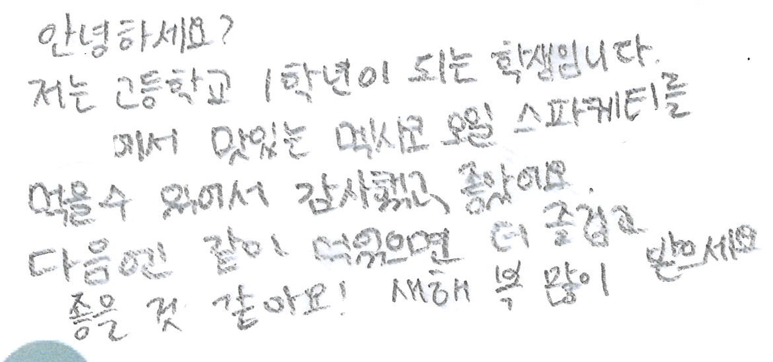 안녕하세요?
저는 고등학교 1학년이 되는 학생입니다.
에서 맛있는 멕시코 오일 스파케티를
먹을수 있어서 감사했고, 좋았어요.
다음엔 같이 먹었으면 더 즐겁고
좋을 것 같아요! 새해 복 많이 받으세요